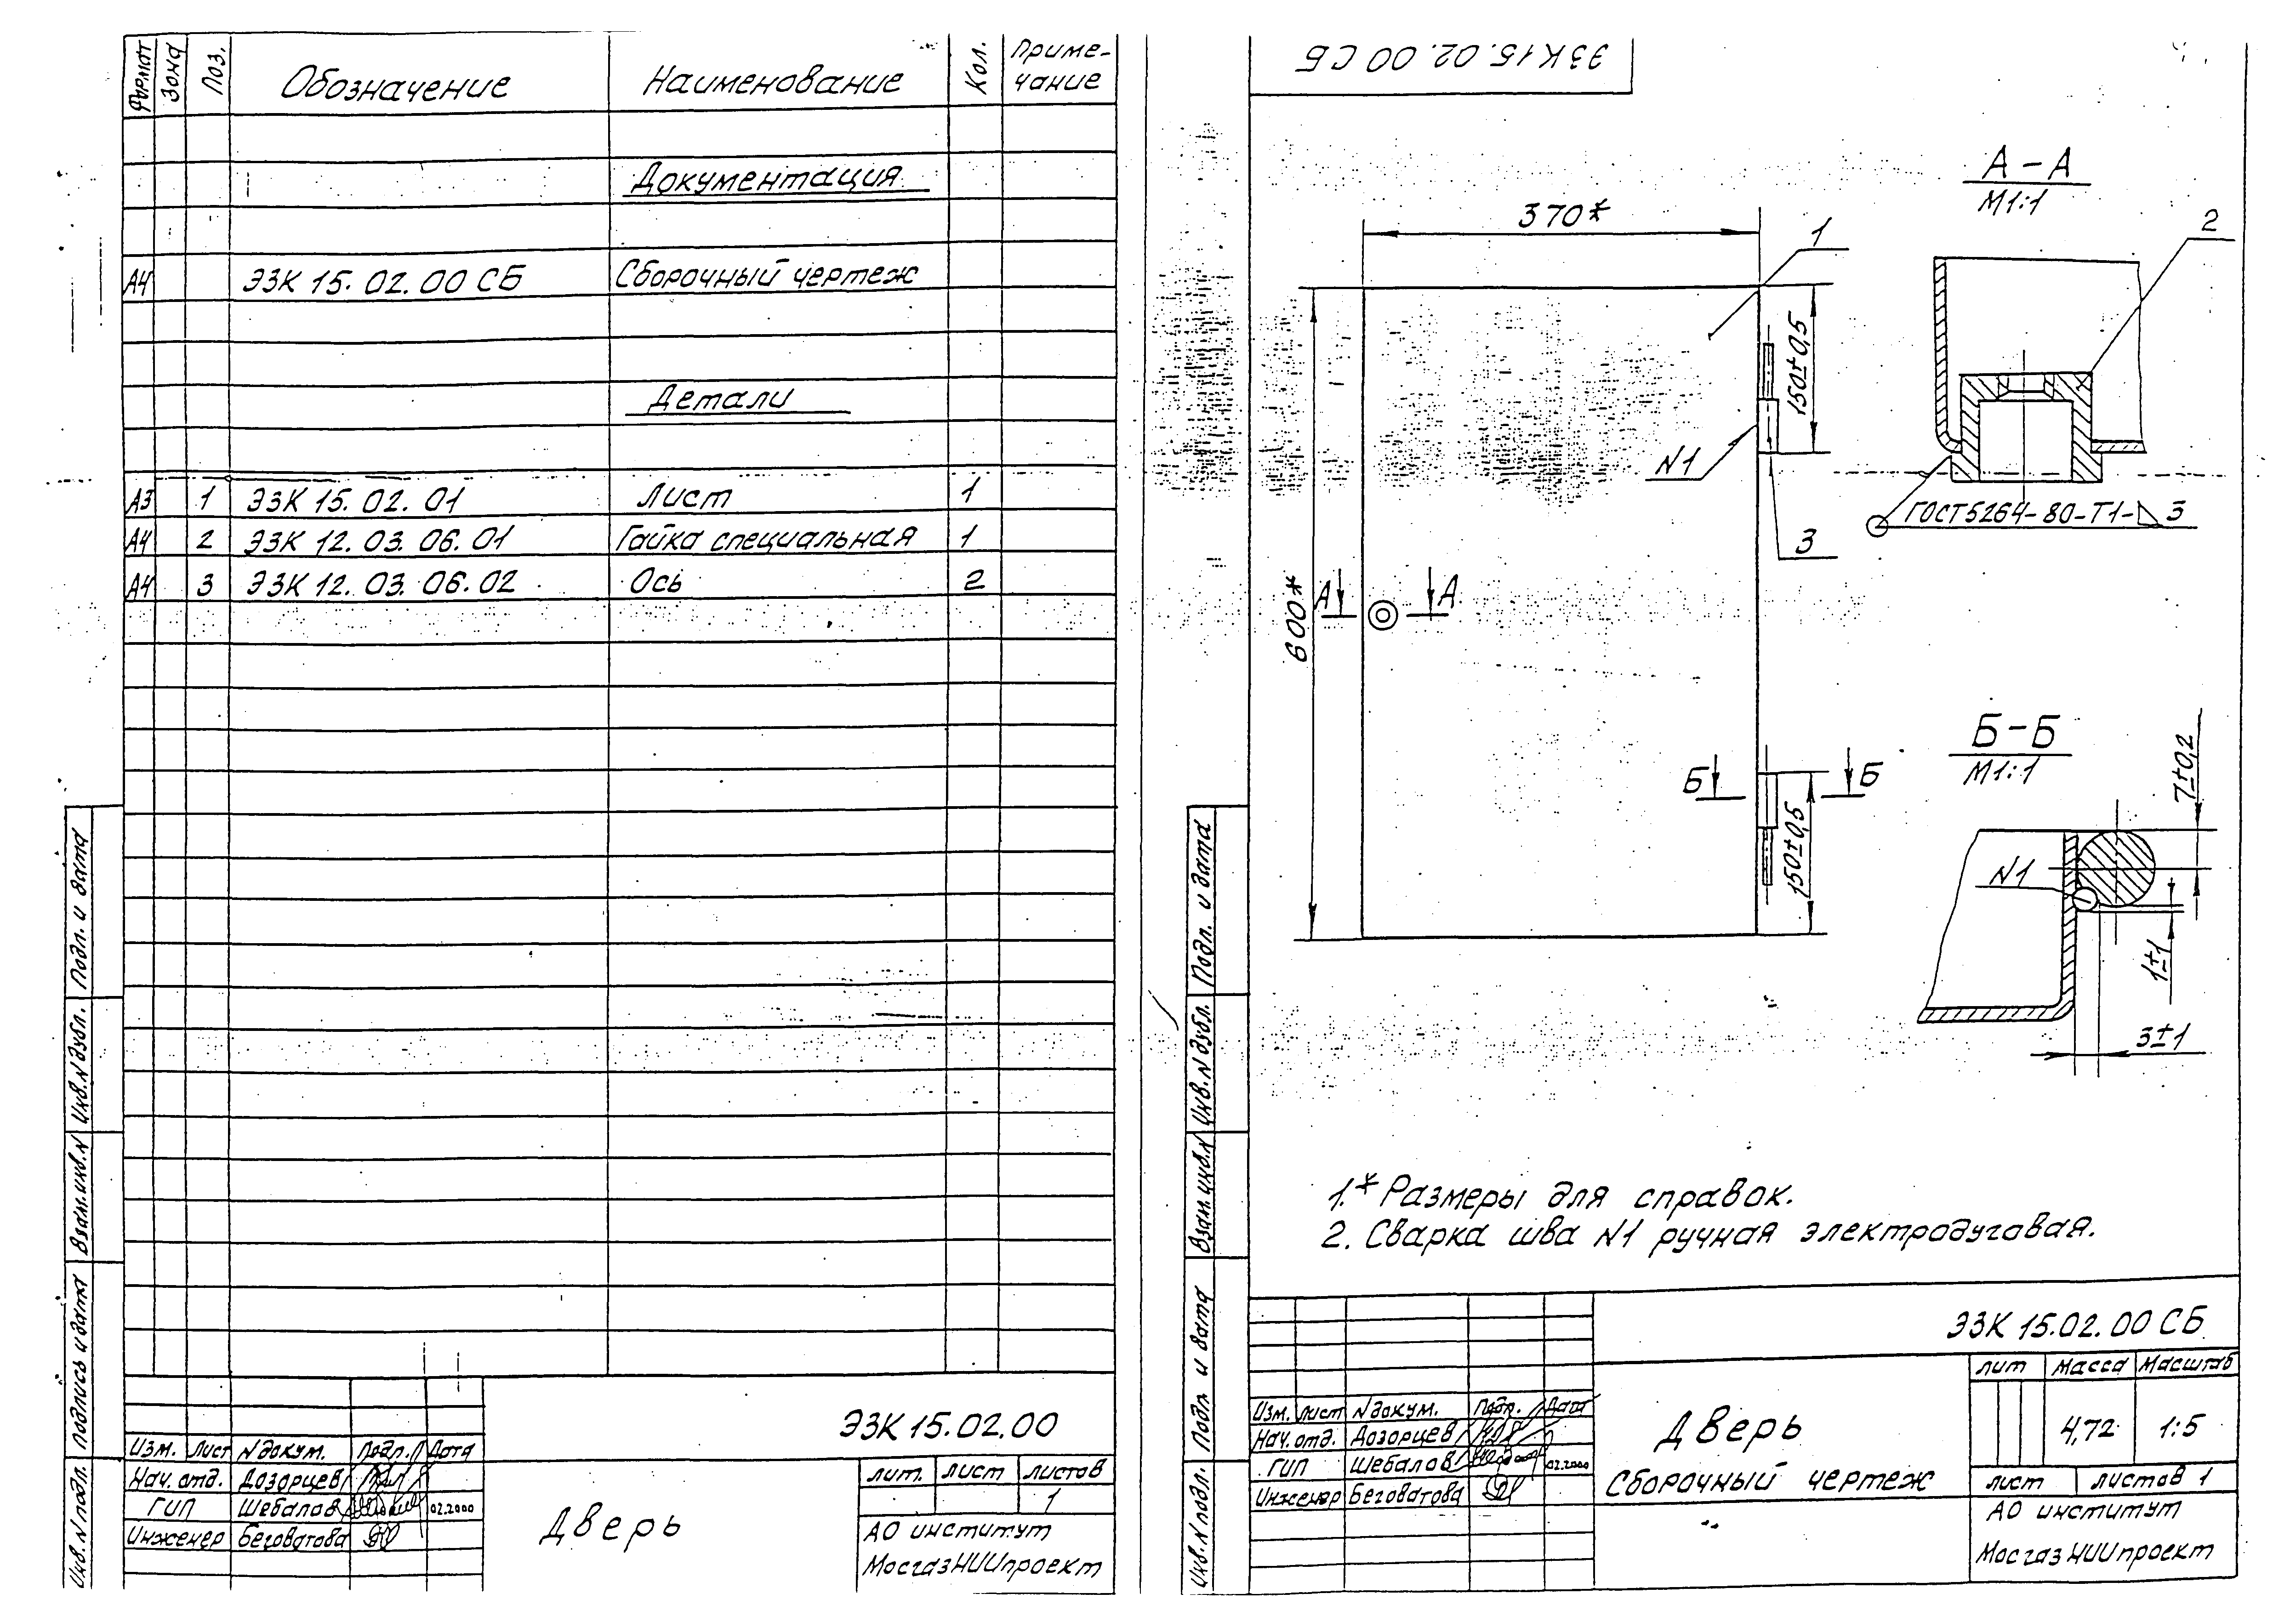 Формат Зона Поз. Обозначение Наименование Кол. Приме-
чание
Документация
А4 ЭЗК 15. 02. 00 СБ Сборочный чертеж
Детали
А3 1 ЭЗК 15. 02. 01 Лист 1
А4 2 ЭЗК 12. 03. 06. 01 Гайка специальная 1
А4 3 ЭЗК 12. 03. 06. 02 Ось 2
Подл. и дата
Инв. N дубл.
Взам. инв. N
Подпись и дата
Инв. N подл.
ЭЗК 15.02.00
Изм. Лист N докум. Подп. Дата
Нач. отд. Дозорцев
ГИП Шебалов 02.2000
Инженер Беговатова
Дверь
лит. лист листов
1
АО институт
МосгазНИИпроект
ЭЗК 15. 02. 00 СБ
370*
1
А – А
М1:1
2
150±0,5
N1
3
ГОСТ 5264-80-Т1- 3
600*
А А
Б – Б
М1:1
Б Б
150±0,5
7±0,2
N1
1±1
3±1
1.* Размеры для справок.
2. Сварка шва N1 ручная электродуговая.
Подл. и дата
Инв. N дубл.
Взам. инв. N
Подл. и дата
Инв. N подл.
ЭЗК 15.02.00 СБ
Изм. лист N докум. Подп. Дата
Нач. отд. Дозорцев
ГИП Шебалов 02.2000
Инженер Беговатова
Дверь
Сборочный чертеж
лит Масса Масштаб
4,72 1:5
лист листов 1
АО институт
МосгазНИИпроект